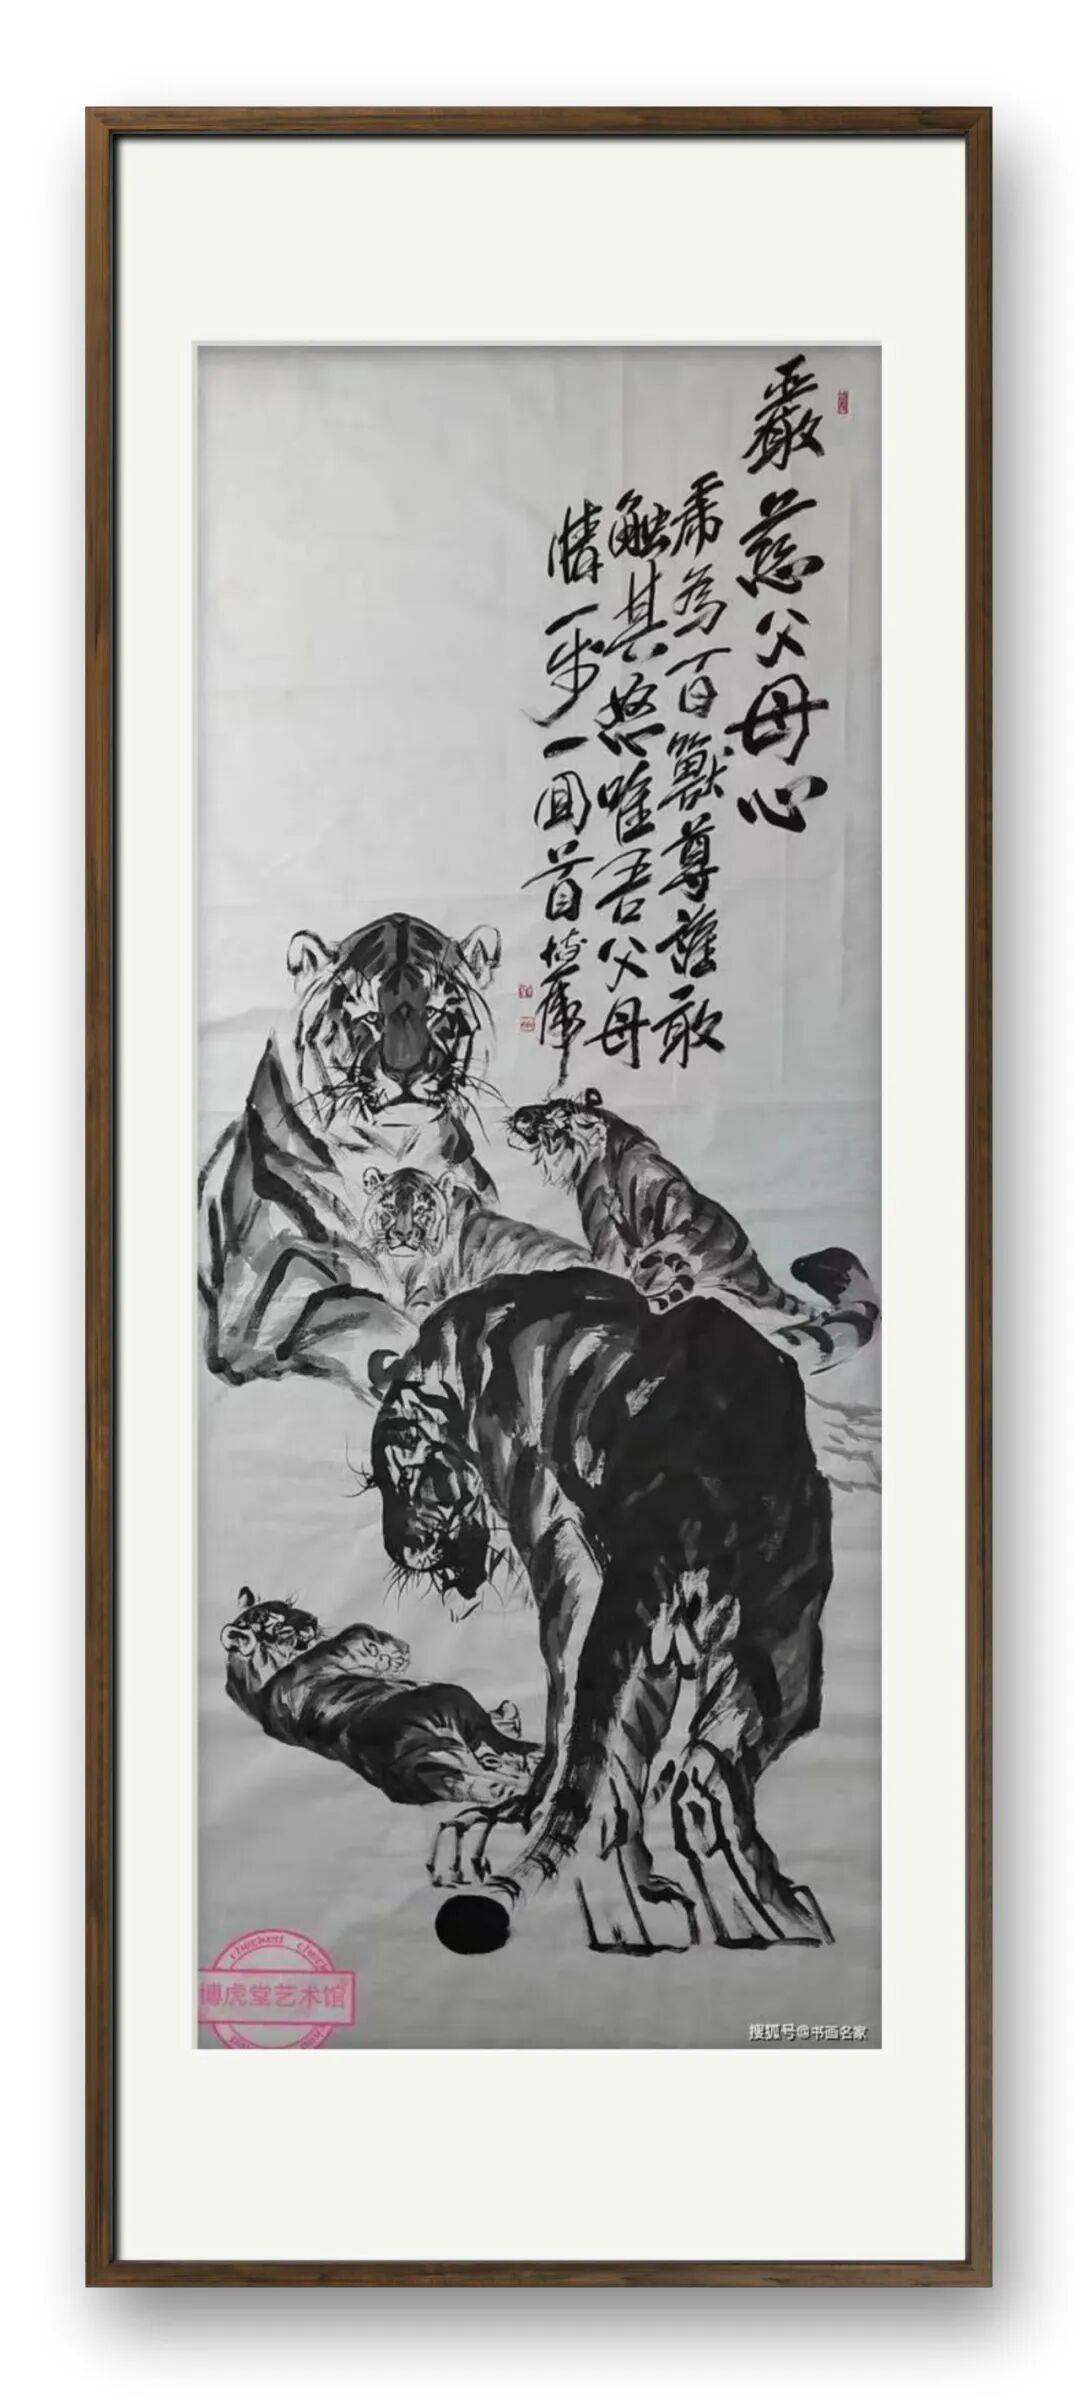 嚴慈父母心
虎為百獸尊誰敢
觸其怒唯吾父母
情一步一回首
博虎堂艺术馆
搜狐号@书画名家